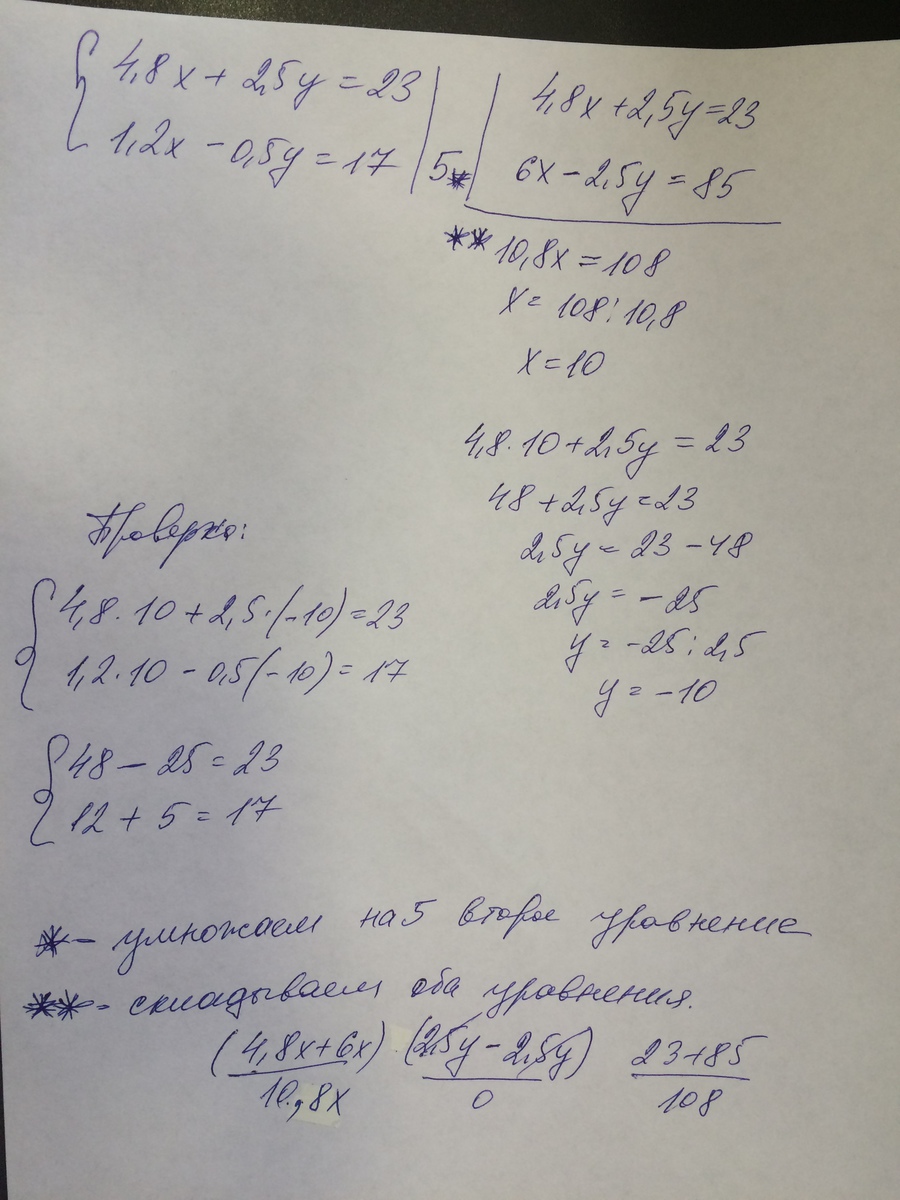 4,8x + 2,5y = 23
1,2x - 0,5y = 17 | 5*
4,8x + 2,5y = 23
6x - 2,5y = 85
** 10,8x = 108
x = 108 : 10,8
x = 10
4,8 · 10 + 2,5y = 23
48 + 2,5y = 23
2,5y = 23 - 48
2,5y = - 25
y = -25 : 2,5
y = -10
Проверка:
4,8 · 10 + 2,5 · (-10) = 23
1,2 · 10 - 0,5 (-10) = 17
48 - 25 = 23
12 + 5 = 17
* - умножаем на 5 второе уравнение
** - складываем оба уравнения.
(4,8x + 6x) (2,5y - 2,5y) 23 + 85
10,8x 0 108